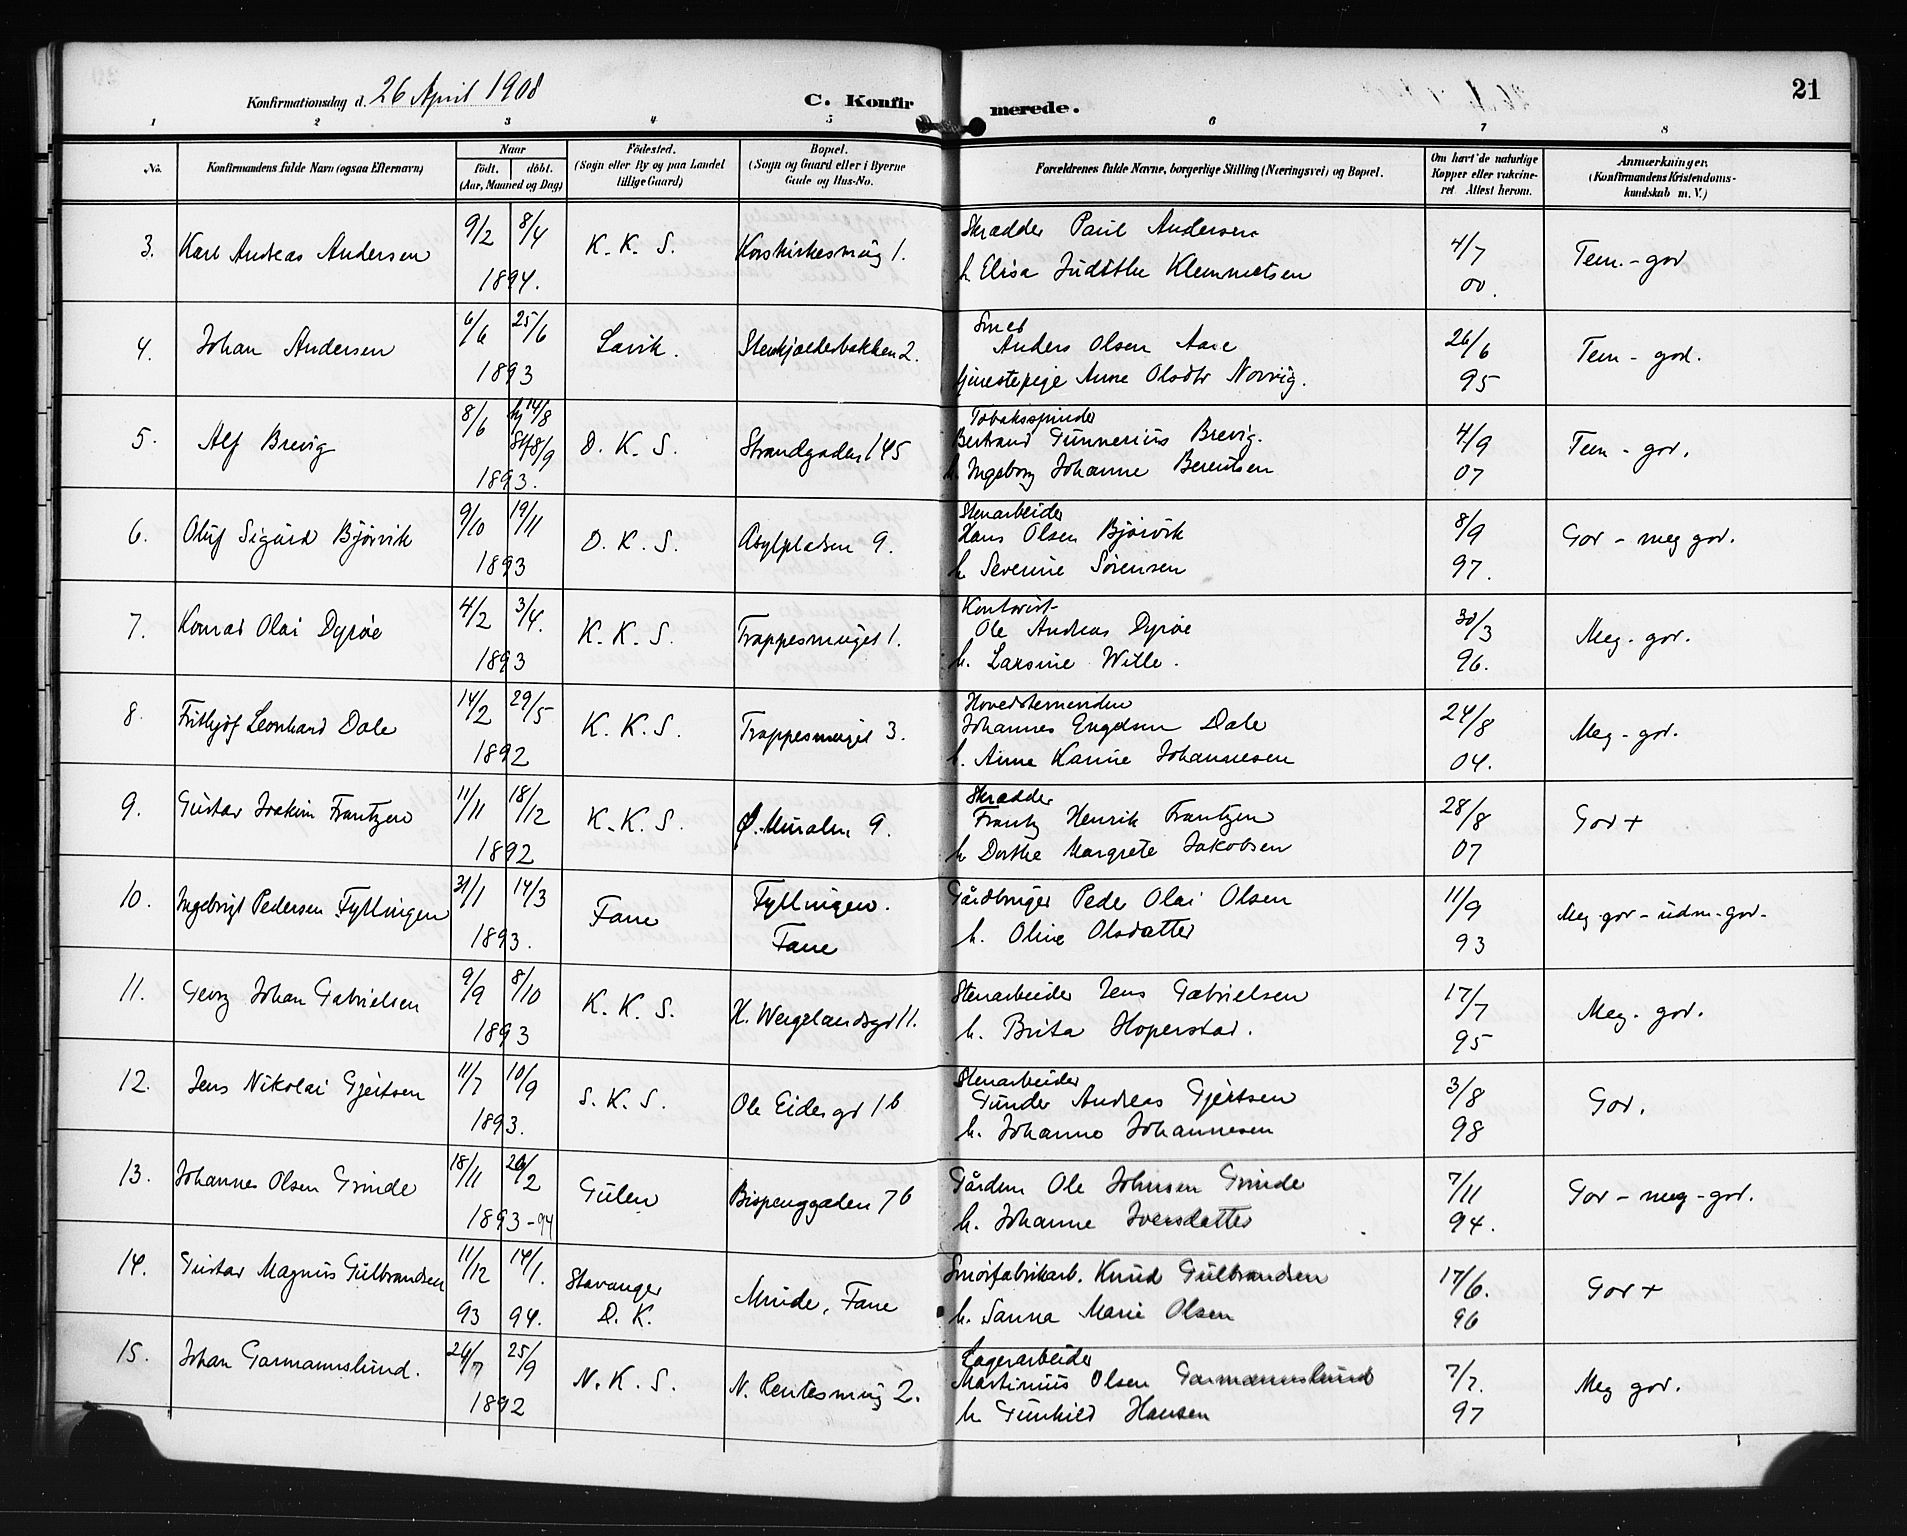 Konfirmationsdag d. 26 April 1908
C. Konfirmerede.
21
1 2 3 4 5 6 7 8
No. Konfirmandens fulde Navn (ogsaa Efternavn) Naar født. døbt. (Aar, Maaned og Dag) Fødested. (Sogn eller By og paa Landet tillige Gaard) Bopæl. (Sogn og Gaard eller i Byerne Gade og Hus-No. Forældrenes fulde Navne, borgerlige Stilling (Næringsvei) og Bopæl. Om havt de naturlige Kopper eller vaccineret Attest herom. Anmærkninger. (Konfirmandens Kristendomskundskab m. V.)
3. Karl Andreas Andersen 9/2 8/4 1894. K. K. S. Korskirkesmug 1. Skrædder Paul Andersen
h. Elisa Judithe Klemmetsen 4/7 00. Tem. - god
4. Johan Andersen 6/6 25/6 1893 Lavik. Stenkjælderbakken 2. Smed
Anders Olsen Aare
Anne Olsdtr 26/6 95 Tem - god.
5. Alf Brevig 8/6 hj 14/8 Stf 8/9 1893. D. K. S. Strandgaden 145 Tobaksspinder
Bertrand Gunnerius Brevig.
h. Ingeborg Johanne Berentsen 4/9 07 Tem - god.
6. Oluf Sigurd Bjørvik 9/10 19/11 1893 D. K. S. Asylpladsen 9. Stenarbeider
Hans Olsen Bjørvik
h. Severine Sørensen 8/9 97. God - meg god.
7. Konrad Olai Dyrøe 4/2 3/4. 1893 K. K. S. Trappesmuget 1. Kontorist
Ole Andreas Dyrøe
h. Larsine Wille. 30/3 96. Meg. god.
8. Frithjof Leonhard Dale 14/2 29/5 1892 K. K. S. Trappesmuget 3.
Johannes Engelsen Dale
h. Anne Karine Johannesen 24/8 04. Meg - god.
9. Gustav Joakim Frantzen 11/11 18/12 1892 K. K. S. Ø. Muralm 9. Skrædder
Frantz Henrik Frantzen
h. Dorthe Margrete Jakobsen 28/8 07 God +
10. Ingebrigt Pedersen Fyllingen 31/1 14/3 1893. Fane Fyllingen.
Fane Gårdbruger Peder Olai Olsen
h. Oline Olsdatter 11/9 93 Meg god - udm - god -
11. Georg Johan Gabrielsen 9/9 8/10 1893 K. K. S. H. Wergelandsgd 11. Stenarbeider Jens Gabrielsen
h. Brita Hoperstad. 17/7 95 Meg. god.
12. Jens Nikolai Gjertsen 11/7 10/9 1893. S. K. S. Ole Eidesgd 1 b Stenarbeider
Gunder Andreas Gjertsen
h. Johanne Johannesen 3/8 98 God.
13. Johannes Olsen Grinde 18/11 26/2 1893-94 Gulen Bispenggaden 7 b Gårdm Ole Johnsen Grinde
h. Johanne Iversdatter 7/11 94. God - meg - god.
14. Gustav Magnus Gulbrandsen 11/12 93 14/1. 94. Stavanger
D. K. Minde, Fane Smørfabrikarb. Knud Gulbrandsen
h. Sanna Marie Olsen 17/6. 96 God +
15. Johan Garmannslund. 24/7 25/9 1892 N. K. S. N. Rentesmug 2. Lagerarbeider
Martinius Olsen Garmannslund
h. Gunhild Hansen 7/7. 97 Meg god.